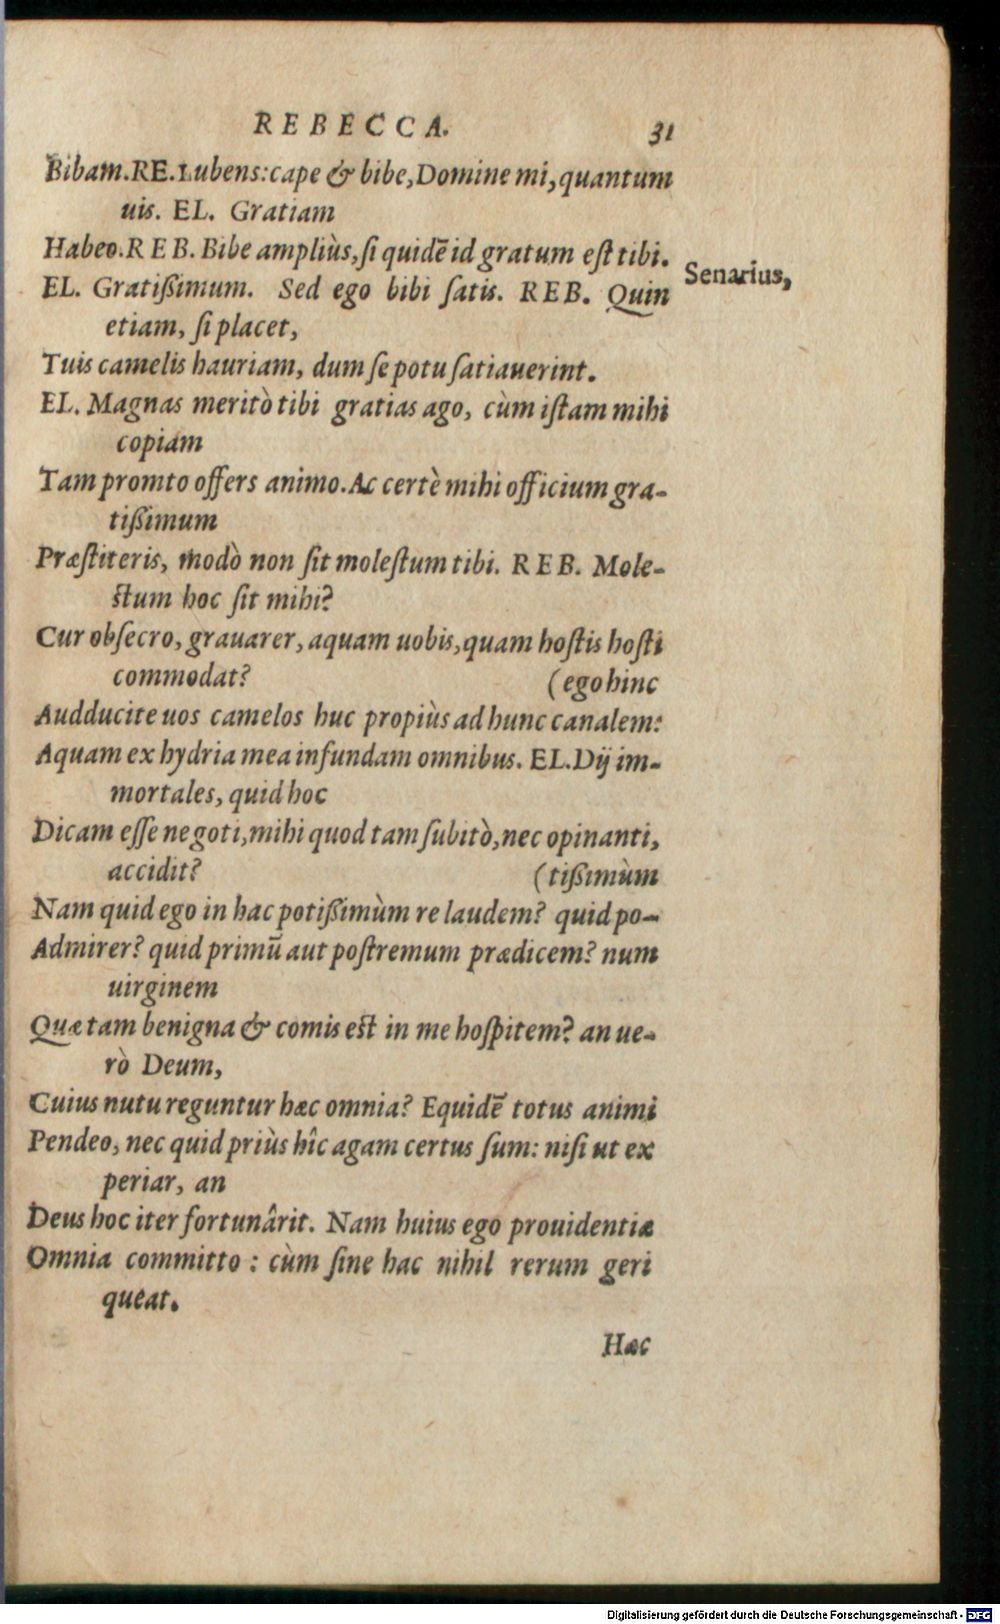 REBECCA. 31
Bibam. RE. Lubens: cape & bibe, Domine mi, quantum
uis. EL. Gratiam
Habeo. REB. Bibe ampliùs, si quidē id gratum est tibi.
Senarius,
EL. Gratißimum. Sed ego bibi satis. REB. Quin
etiam, si placet,
Tuis camelis hauriam, dum se potu satiauerint.
EL. Magnas meritò tibi gratias ago, cùm istam mihi
copiam
Tam promto offers animo. Ac certè mihi officium gra-
tißimum
Præstiteris, modò non sit molestum tibi. REB. Mole-
stum hoc sit mihi?
Cur obsecro, grauarer, aquam uobis, quam hostis hosti
commodat? (ego hinc
Audducite uos camelos huc propiùs ad hunc canalem:
Aquam ex hydria mea infundam omnibus. EL. Dij im-
mortales, quid hoc
Dicam esse negoti, mihi quod tam subitò, nec opinanti,
accidit? (tißimùm
Nam quid ego in hac potißimùm re laudem? quid po-
Admirer? quid primū aut postremum prædicem? num
uirginem
Quæ tam benigna & comis est in me hospitem? an ue-
rò Deum,
Cuius nutu reguntur hæc omnia? Equidē totus animi
Pendeo, nec quid priùs hîc agam certus sum: nisi ut ex
periar, an
Deus hoc iter fortunârit. Nam huius ego prouidentiæ
Omnia committo: cùm sine hac nihil rerum geri
queat.
Hæc
Digitalisierung gefördert durch die Deutsche Forschungsgemeinschaft - DFG